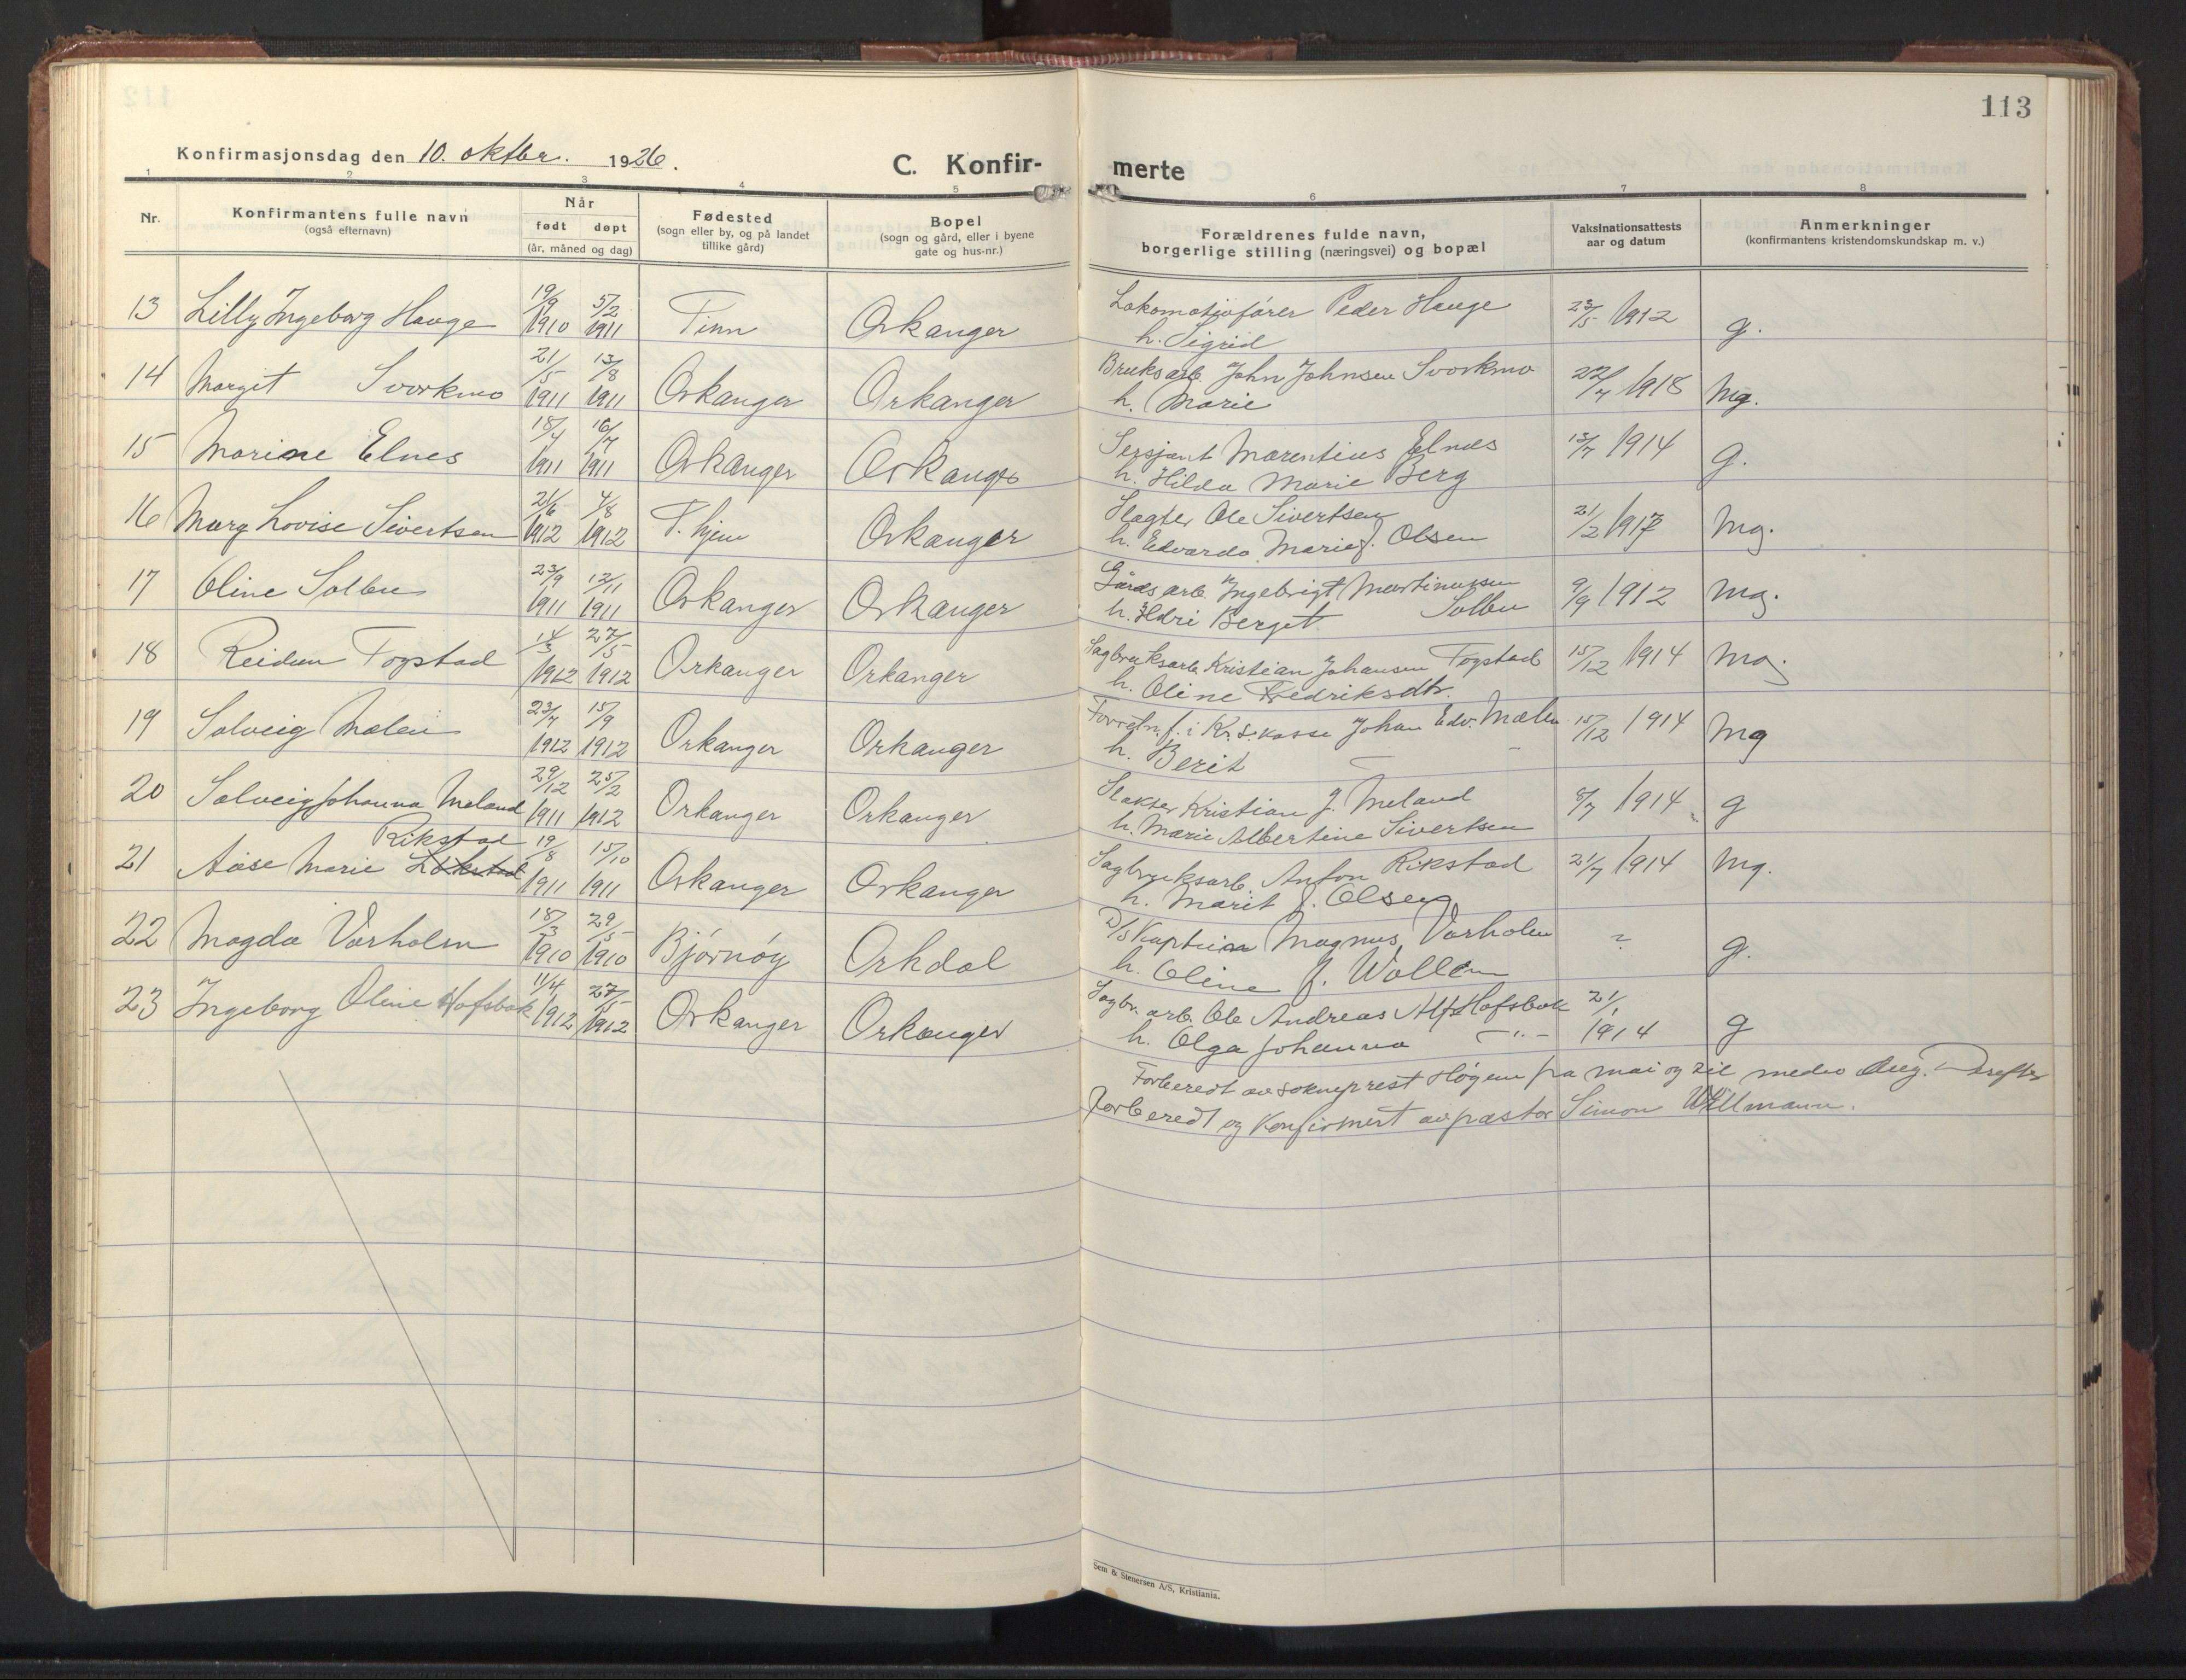 113
Konfirmasjonsdag den 10. oktbr. 1926.
C. Konfir-
merte
1 2 3 4 5 6 7 8
Nr.
Konfirmantens fulle navn
(også efternavn)
Når
født døpt
(år, måned og dag)
Fødested
(sogn eller by, og på landet
tillike gård)
Bopel
(sogn og gård, eller i byene
gate og hus-nr.)
Forældrenes fulde navn,
borgerlige stilling (næringsvei) og bopæl
Vaksinationsattests
aar og datum
Anmerkninger
(konfirmantens kristendomskundskap m. v.)
13 Lilly Ingeborg Hauge 19/9 1910 5/2 1911 Tinn Orkanger Lokomotivfører Peder Hauge 23/5 1912 g.
h. Sigrid
14 Margit Svorkmo 21/5 1911 13/8 1911 Orkanger Orkanger Bruksarb. John Johnsen Svorkmo 22/7 1918 Mg.
h. Marie
15 Marine Elnes 18/4 1911 16/7 1911 Orkanger Orkanger Sersjant Marentius Elnæs 13/7 1914 g.
h. Hilda Marie Berg
16 Mary Lovise Sivertsen 21/6 1912 4/8 1912 T. hjem Orkanger Slagter Ole Sivertsen 21/2 1917 Mg.
h. Edvarda Marie J. Olsen
17 Oline Solbu 23/9 1911 12/11 1911 Orkanger Orkanger Gårdsarb. Ingebrigt Martinussen 9/9 1912 Mg.
h. Ildri Berget Solbu
18 Reidun Togstad 14/3 1912 27/5 1912 Orkanger Orkanger Sagbruksarb. Kristian Johansen Togstad 15/12 1914 Mg.
h. Oline Fredriksdtr.
19 Solveig Mælen 23/7 1912 15/9 1912 Orkanger Orkanger Forretn.f. i Kr.s.kasse Johan Edv. Mælen 15/12 1914 Mg
h. Berit
20 Solveig Johanna Meland 29/12 1911 25/2 1912 Orkanger Orkanger Slakter Kristian J. Meland 8/7 1914 g
h. Marie Albertine Sivertsen
Rikstad
21 Aase Marie 19/8 1911 15/10 1911 Orkanger Orkanger Sagbruksarb. Anton Rikstad 21/7 1914 Mg.
h. Marit J. Olsen
22 Magda Varholm 18/3 1910 29/5 1910 Bjørnøy Orkdal D/S Kaptein Magnus Varholm ? g.
h. Oline J. Wollen
23 Ingeborg Oline Hofsbak 11/4 1912 27/5 1912 Orkanger Orkanger Sagbr. arb. Ole Andreas Alf. Hofsbak 21/1 1914 g
h. Olga Johanna —"—
Forberedt av sokneprest Høgem fra mai og til medio Aug. Derefter
forberedt og konfirmert av pastor Simon Wellmann.
Sem & Stenersen A/S, Kristiania.